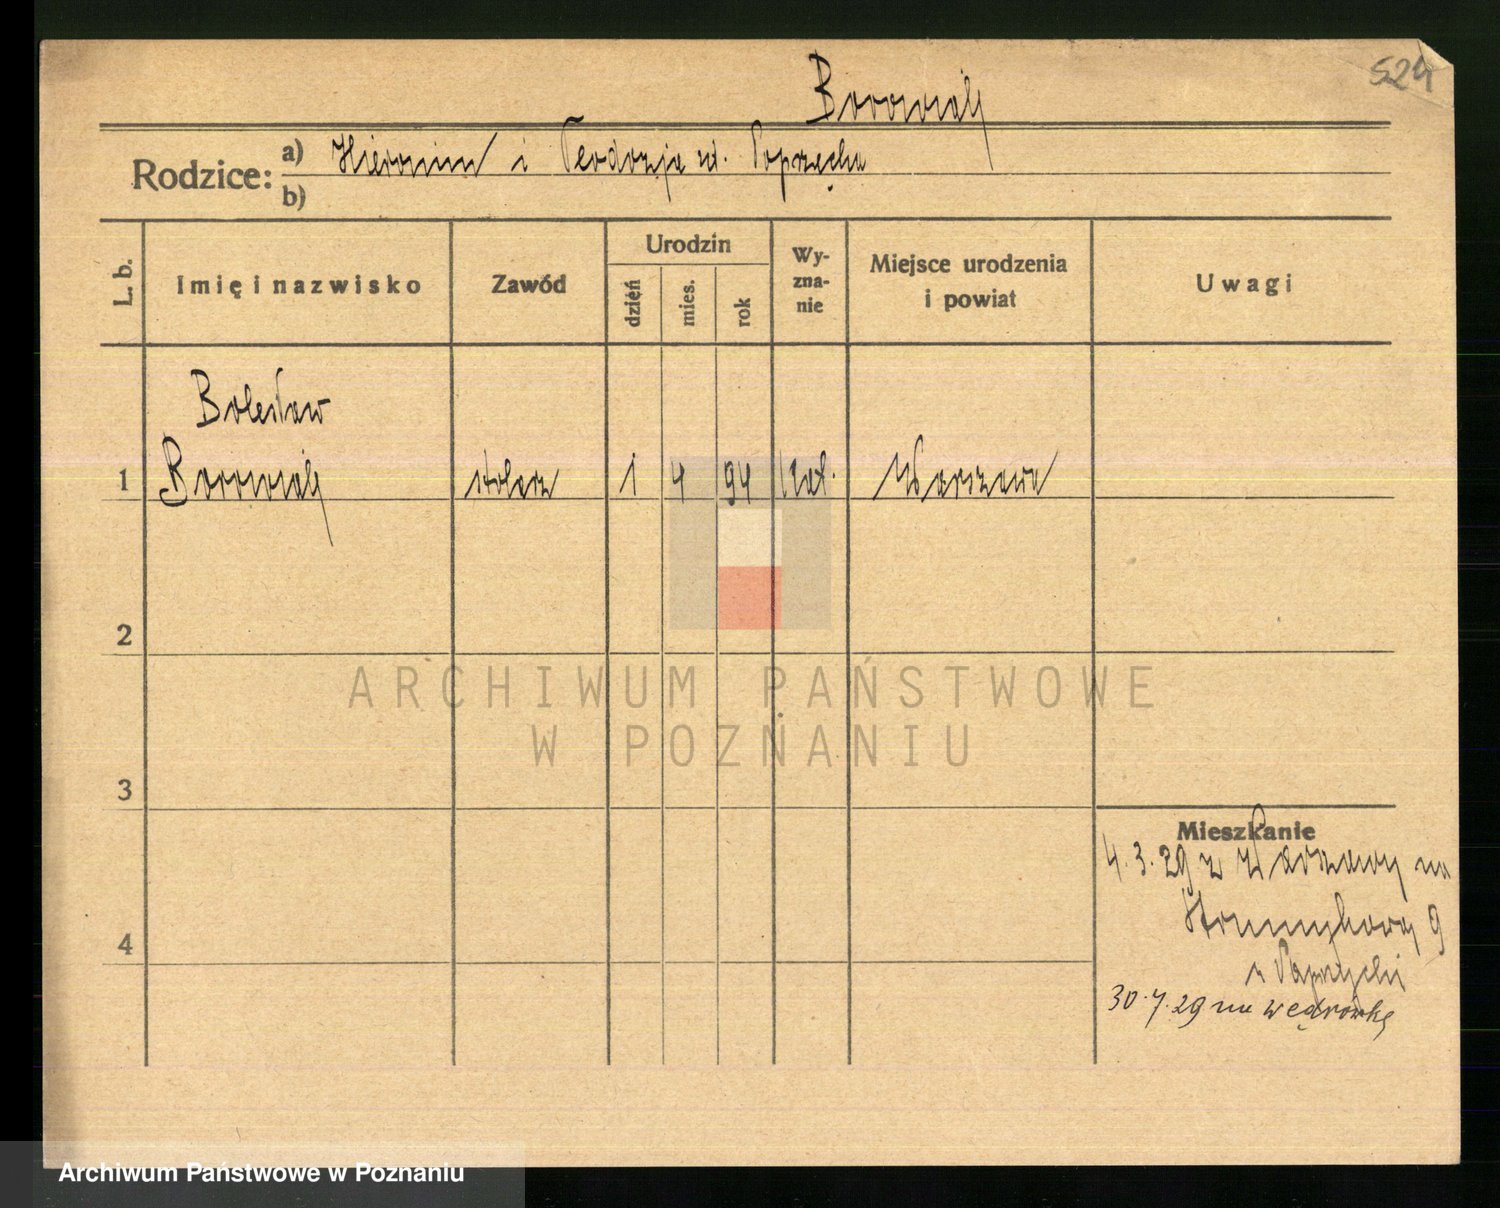 Borowiak
524
Rodzice: a) Hieronim i Teodozja ur. Poprzęcka
b)
L. b.
Imię i nazwisko
Zawód
Urodzin
dzień mies. rok
Wy-
zna-
nie
Miejsce urodzenia
i powiat
Uwagi
Bolesław
1 Borowiak stolarz 1 4 94 kat. Warszawa
2
3
4
ARCHIWUM PAŃSTWOWE
W POZNANIU
Mieszkanie
4.3.29 z Warszawy na
9
30.7.29 na wędrówkę
Archiwum Państwowe w Poznaniu